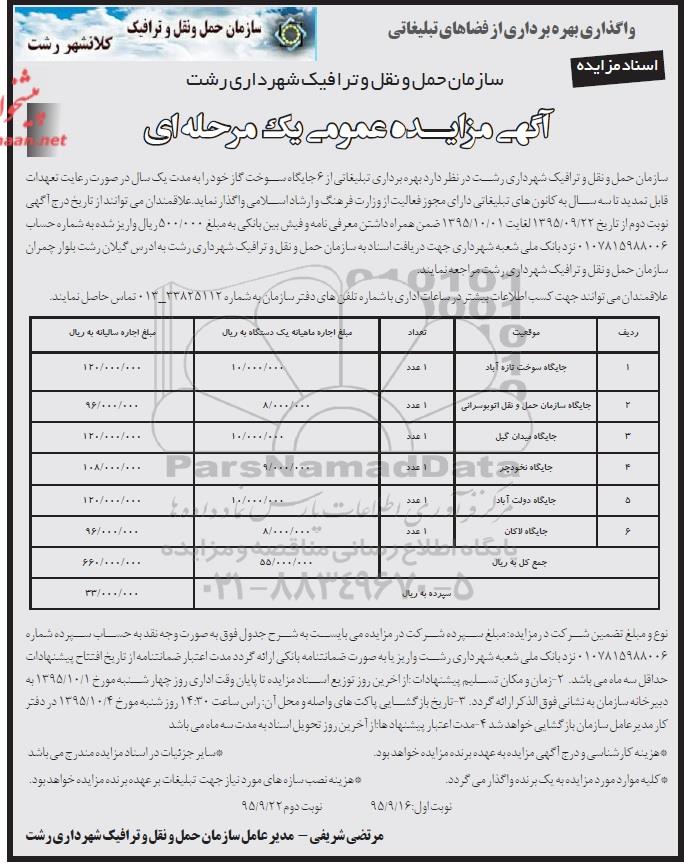 سازمان حمل ونقل و ترافیک
کلانشهر رشت
واگذاری بهره برداری از فضاهای تبلیغاتی
اسناد مزایده
سازمان حمل و نقل و ترافیک شهرداری رشت
آگهی مزایده عمومی یک مرحله ای
سازمان حمل و نقل و ترافیک شهرداری رشت در نظر دارد بهره برداری تبلیغاتی از ۶ جایگاه سوخت گاز خود را به مدت یک سال در صورت رعایت تعهدات
قابل تمدید تا سه سال به کانون های تبلیغاتی دارای مجوز فعالیت از وزارت فرهنگ و ارشاد اسلامی واگذار نماید.علاقمندان می توانند از تاریخ درج آگهی
نوبت دوم از تاریخ ۱۳۹۵/۰۹/۲۲ لغایت ۱۳۹۵/۱۰/۰۱ ضمن همراه داشتن معرفی نامه و فیش بین بانکی به مبلغ ۵۰۰/۰۰۰ ریال واریز شده به شماره حساب
۰۱۰۷۸۱۵۹۸۸۰۰۶ نزد بانک ملی شعبه شهرداری جهت دریافت اسناد به سازمان حمل و نقل و ترافیک شهرداری رشت به ادرس گیلان رشت بلوار چمران
سازمان حمل و نقل و ترافیک شهرداری رشت مراجعه نمایند.
علاقمندان می توانند جهت کسب اطلاعات بیشتر در ساعات اداری با شماره تلفن های دفتر سازمان به شماره ۳۳۸۲۵۱۱۲_۰۱۳ تماس حاصل نمایند.
ردیف موقعیت تعداد مبلغ اجاره ماهیانه یک دستگاه به ریال مبلغ اجاره سالیانه به ریال
۱ جایگاه سوخت تازه آباد ۱ عدد ۱۰/۰۰۰/۰۰۰ ۱۲۰/۰۰۰/۰۰۰
۲ جایگاه سازمان حمل و نقل اتوبوسرانی ۱ عدد ۸/۰۰۰/۰۰۰ ۹۶/۰۰۰/۰۰۰
۳ جایگاه میدان گیل ۱ عدد ۱۰/۰۰۰/۰۰۰ ۱۲۰/۰۰۰/۰۰۰
۴ جایگاه نخودچر ۱ عدد ۹/۰۰۰/۰۰۰ ۱۰۸/۰۰۰/۰۰۰
۵ جایگاه دولت آباد ۱ عدد ۱۰/۰۰۰/۰۰۰ ۱۲۰/۰۰۰/۰۰۰
۶ جایگاه لاکان ۱ عدد ۸/۰۰۰/۰۰۰ ۹۶/۰۰۰/۰۰۰
جمع کل به ریال ۵۵/۰۰۰/۰۰۰ ۶۶۰/۰۰۰/۰۰۰
سپرده به ریال ۳۳/۰۰۰/۰۰۰
ParsNamadData
مرکز فرآوری اطلاعات پارس نماد داده ها
پایگاه اطلاع رسانی مناقصه و مزایده
۰۲۱-۸۸۳۴۹۶۷۰-۵
نوع و مبلغ تضمین شرکت در مزایده: مبلغ سپرده شرکت در مزایده می بایست به شرح جدول فوق به صورت وجه نقد به حساب سپرده شماره
۰۱۰۷۸۱۵۹۸۸۰۰۶ نزد بانک ملی شعبه شهرداری رشت واریز یا به صورت ضمانتنامه بانکی ارائه گردد مدت اعتبار ضمانتنامه از تاریخ افتتاح پیشنهادات
حداقل سه ماه می باشد. ۲-زمان و مکان تسلیم پیشنهادات :از اخرین روز توزیع اسناد مزایده تا پایان وقت اداری روز چهار شنبه مورخ ۱۳۹۵/۱۰/۱ به
دبیرخانه سازمان به نشانی فوق الذکر ارائه گردد. ۳-تاریخ بازگشایی پاکت های واصله و محل آن: راس ساعت ۱۴:۳۰ روز شنبه مورخ ۱۳۹۵/۱۰/۴ در دفتر
کار مدیر عامل سازمان بازگشایی خواهد شد ۴-مدت اعتبار پیشنهادها:از آخرین روز تحویل اسناد به مدت سه ماه می باشد
*هزینه کارشناسی و درج آگهی مزایده به عهده برنده مزایده خواهد بود. *سایر جزئیات در اسناد مزایده مندرج می باشد
*کلیه موارد مورد مزایده به یک برنده واگذار می گردد. *هزینه نصب سازه های مورد نیاز جهت تبلیغات بر عهده برنده مزایده خواهد بود.
نوبت اول: ۹۵/۹/۱۶ نوبت دوم ۹۵/۹/۲۲
مرتضی شریفی - مدیر عامل سازمان حمل و نقل و ترافیک شهرداری رشت